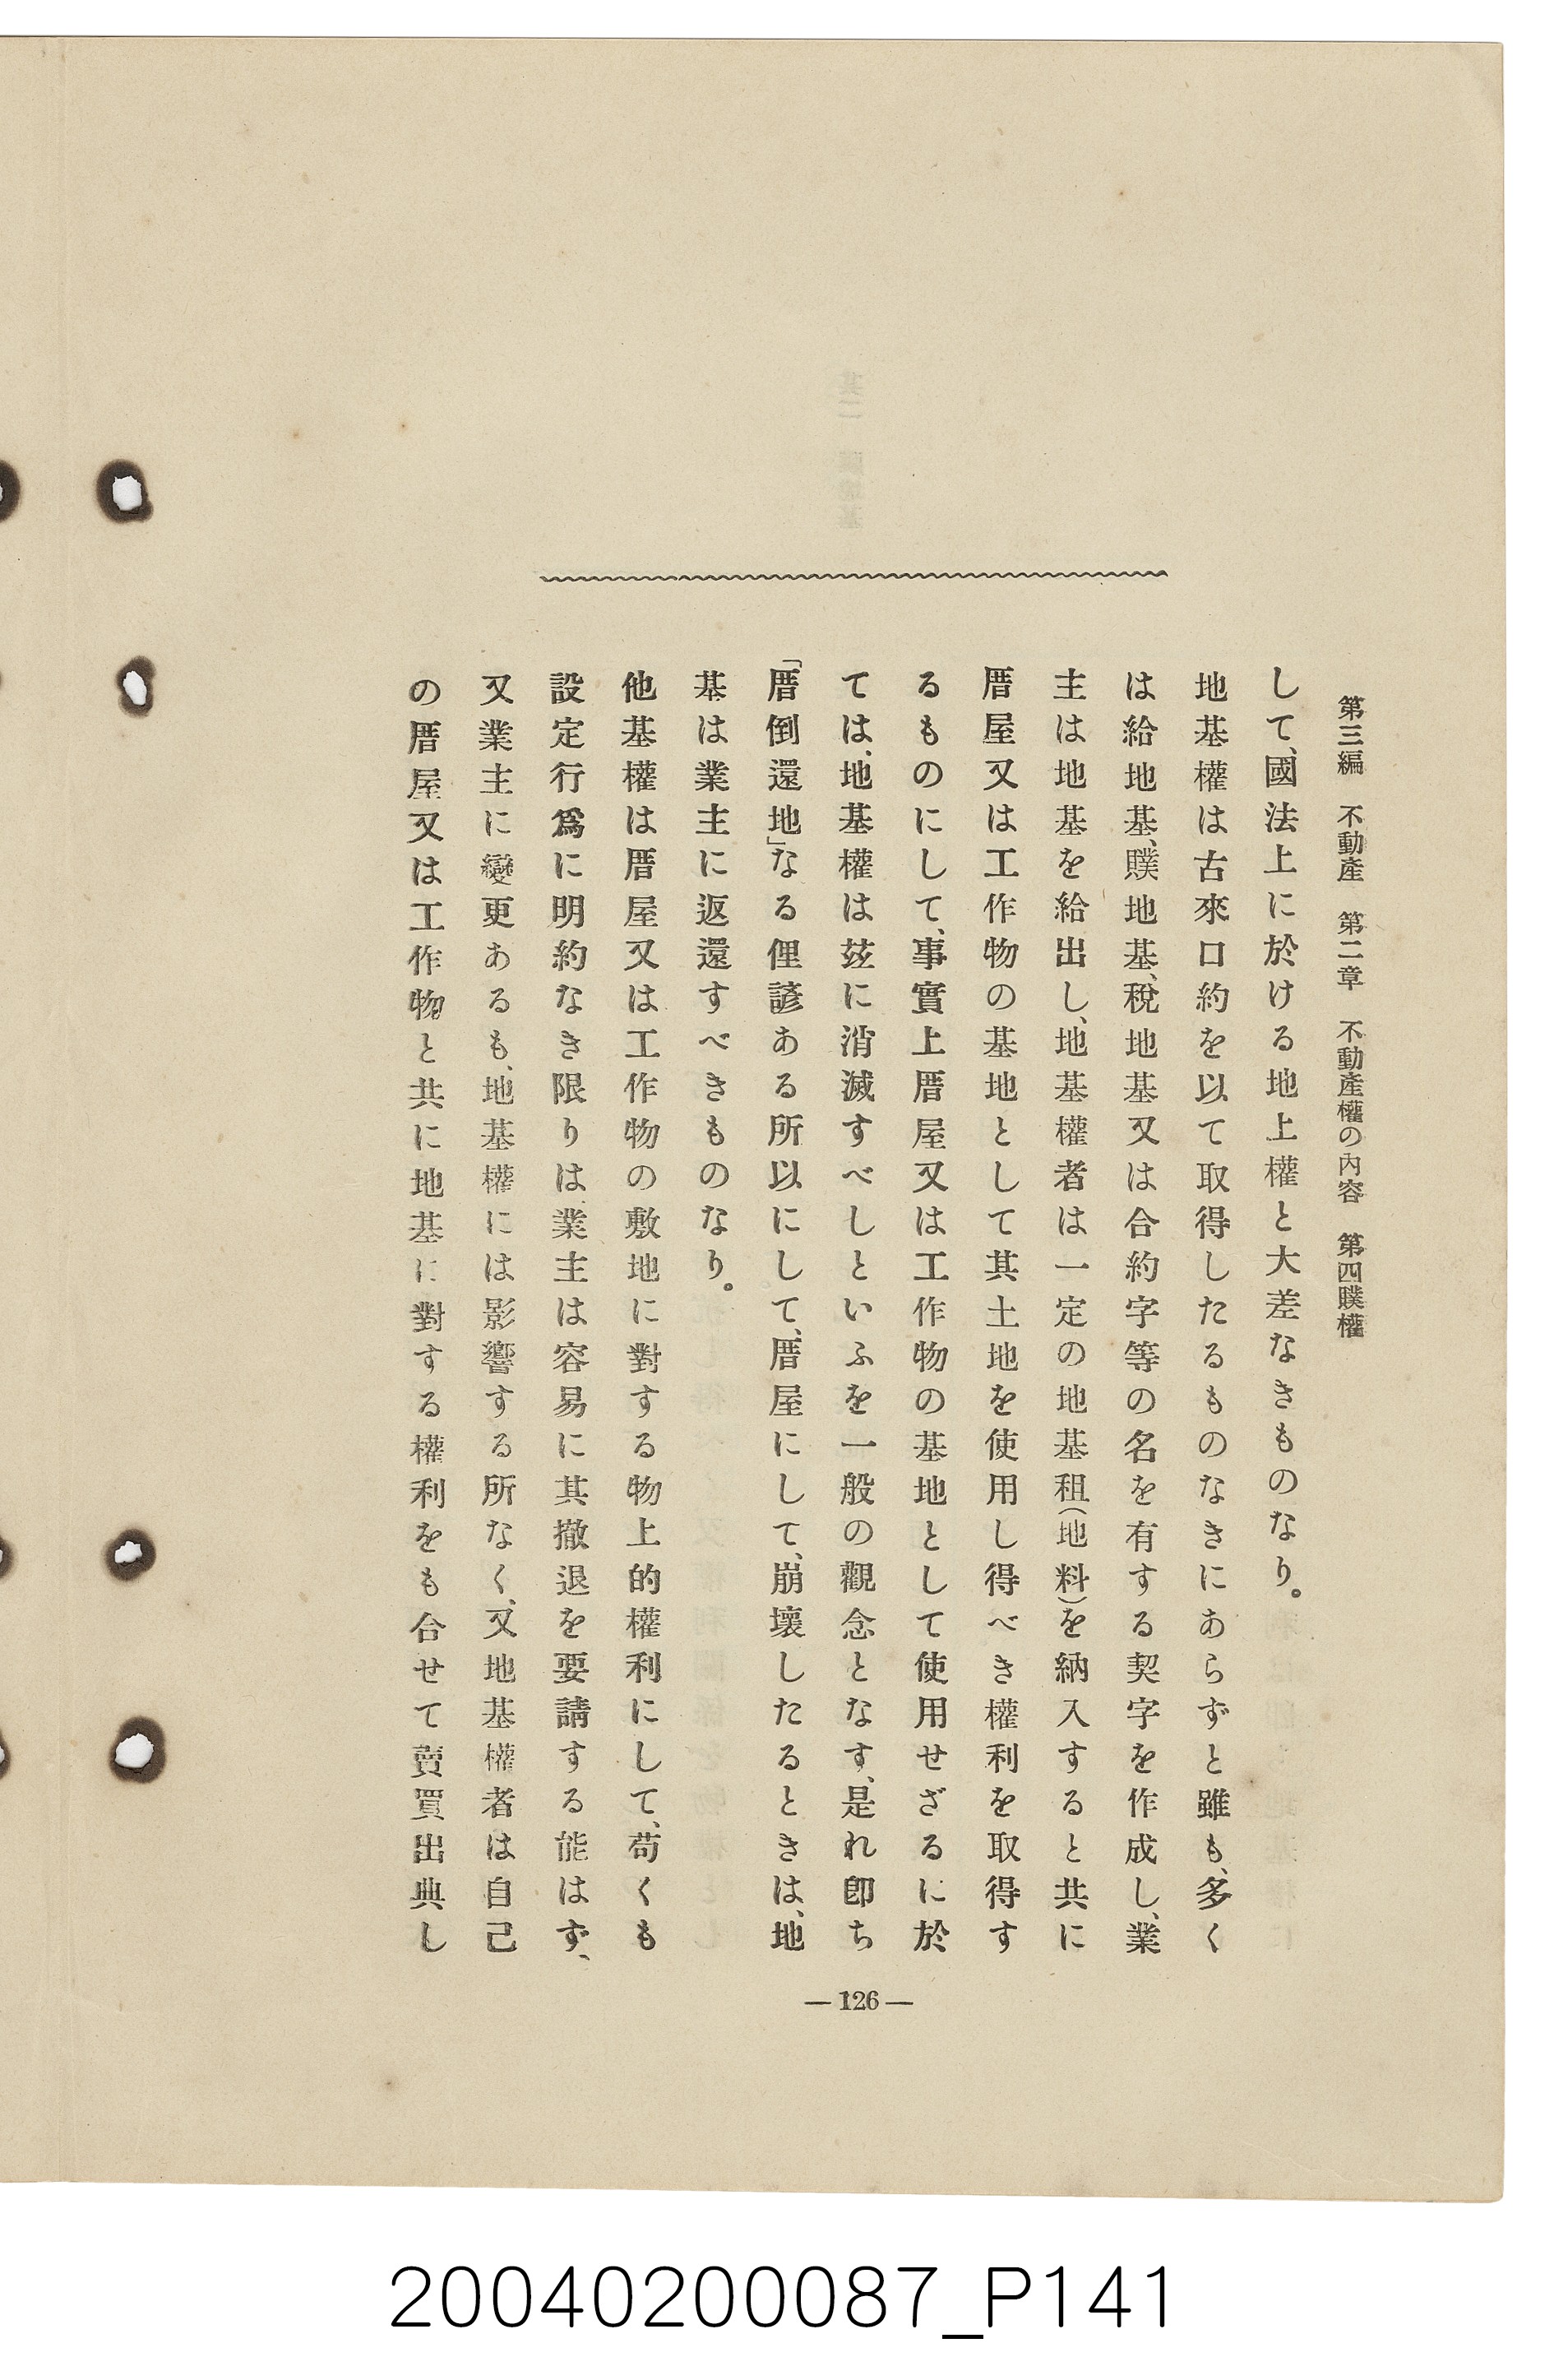 第三編　不動產　第二章　不動產權の內容　第四贌權
して、國法上に於ける地上權と大差なきものなり。
地基權は古來口約を以て取得したるものなきにあらずと雖も、多く
は給地基、贌地基、稅地基又は合約字等の名を有する契字を作成し、業
主は地基を給出し、地基權者は一定の地基租(地料)を納入すると共に
厝屋又は工作物の基地として其土地を使用し得べき權利を取得す
るものにして、事實上厝屋又は工作物の基地として使用せざるに於
ては、地基權は玆に消滅すべしといふを一般の觀念となす、是れ卽ち
「厝倒還地」なる俚諺ある所以にして、厝屋にして、崩壞したるときは、地
基は業主に返還すべきものなり。
他基權は厝屋又は工作物の敷地に對する物上的權利にして、苟くも
設定行爲に明約なき限りは、業主は容易に其撤退を要請する能はず、
又業主に變更あるも、地基權には影響する所なく、又地基權者は自己
の厝屋又は工作物と共に地基に對する權利をも合せて賣買出典し
—126—
20040200087_P141